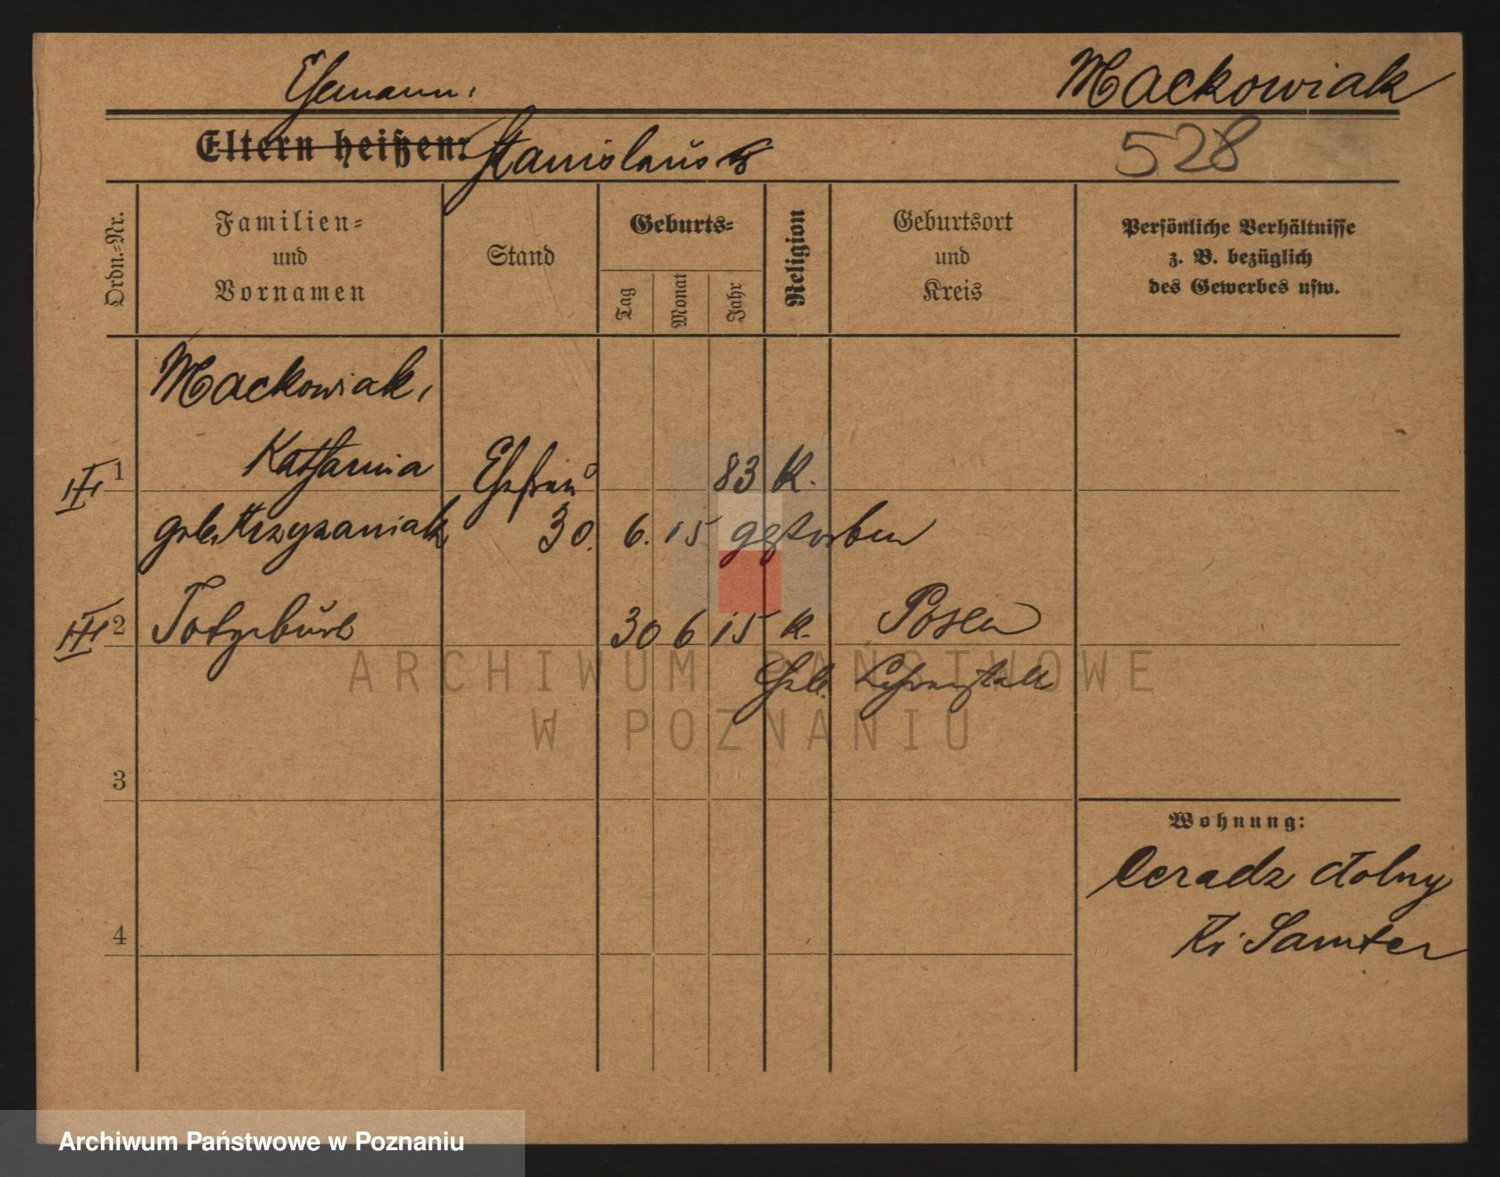 Ehemann: Mackowiak
Eltern heißen: Stanislaus 528
Ordn.=Nr.
Familien=
und
Vornamen
Stand
Geburts=
Tag
Monat
Jahr
Religion
Geburtsort
und
Kreis
Persönliche Verhältnisse
z. B. bezüglich
des Gewerbes usw.
Mackowiak,
III 1 Katharina Ehefrau 83 K.
geb. Krzyzaniak 30. 6. 15 gestorben
III 2 Totgeburt 30 6 15 K. Posen
Geb. Lehranstalt
ARCHIWUM PAŃSTWOWE
W POZNANIU
3
Wohnung:
Ceradz dolny
4
Kr. Samter
Archiwum Państwowe w Poznaniu